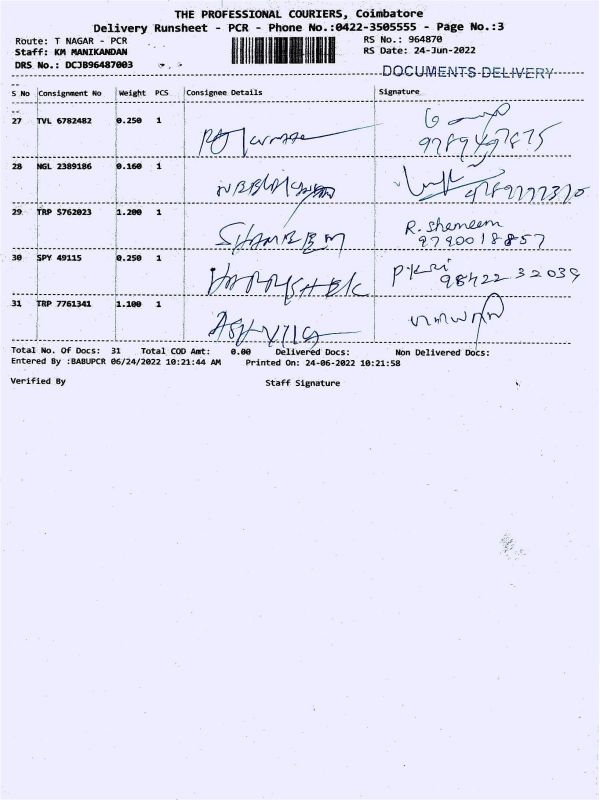 THE PROFESSIONAL COURIERS, Coimbatore
Delivery Runsheet - PCR - Phone No.:0422-3505555 - Page No.:3
Route: T NAGAR - PCR RS No.: 964870
Staff: KM MANIKANDAN RS Date: 24-Jun-2022
DRS No.: DCJB96487003
DOCUMENTS DELIVERY
S No Consignment No Weight PCS Consignee Details Signature
27 TVL 6782482 0.250 1
28 NGL 2389186 0.160 1
29 TRP 5762023 1.200 1 SHAMEEM R. Shemeem
9790018857
30 SPY 49115 0.250 1 98422 32039
31 TRP 7761341 1.100 1
Total No. Of Docs: 31 Total COD Amt: 0.00 Delivered Docs: Non Delivered Docs:
Entered By :BABUPCR 06/24/2022 10:21:44 AM Printed On: 24-06-2022 10:21:58
Verified By Staff Signature